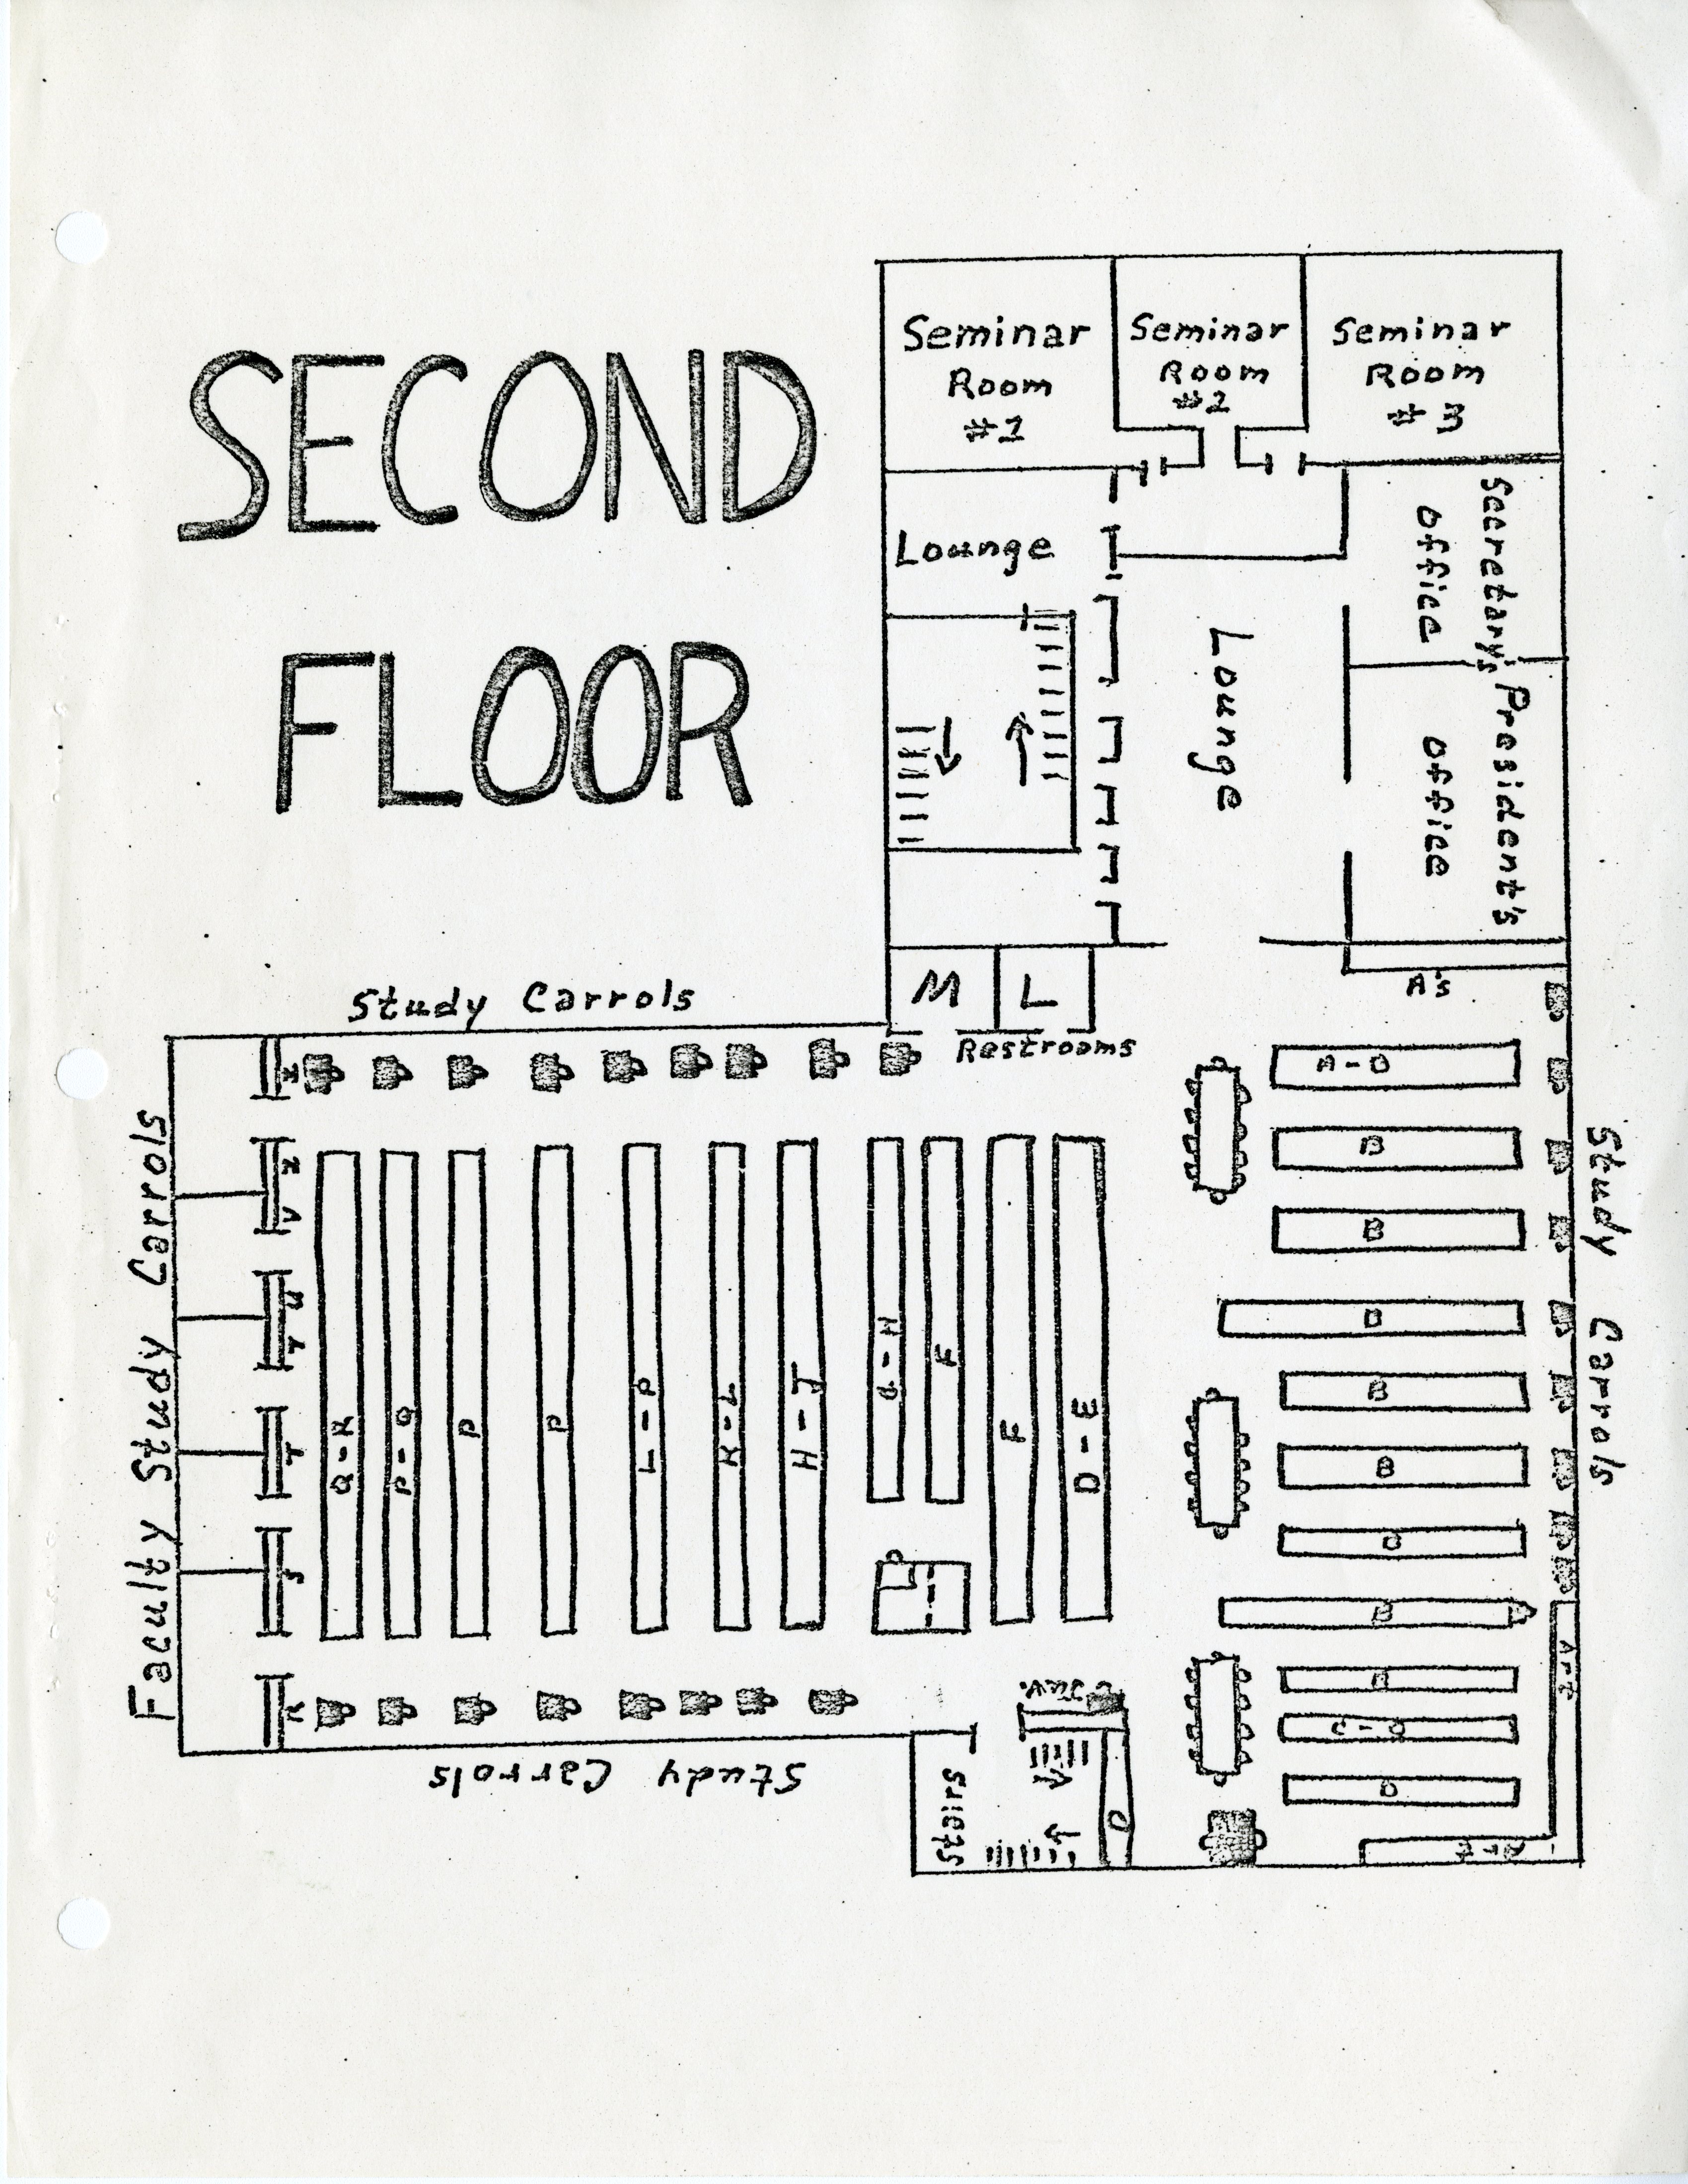 SECOND
FLOOR
Seminar
Room
#1
Seminar
Room
#2
Seminar
Room
#3
Lounge
Lounge
Secretary's
Office
President's
Office
M
L
Restrooms
A's
Study Carrols
Faculty Study Carrols
Study Carrols
Study Carrols
V
U
T
T
S
Q-R
P-Q
P
P
L-P
K-L
H-J
G-H
F
F
D-E
A-B
B
B
B
B
B
B
B
B
C-D
D
Art
Stairs
D